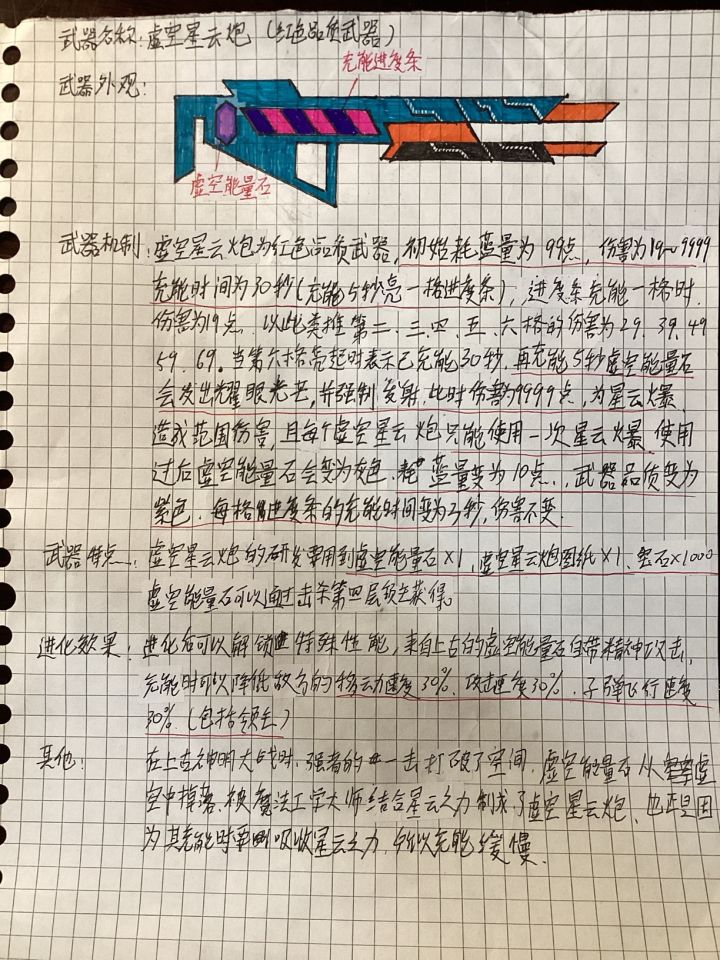 武器名称:虚空星云炮(红色品质武器)
充能进度条
武器外观:
虚空能量石
武器机制:虚空星云炮为红色品质武器,初始耗蓝量为99点,伤害为19~9999
充能时间为30秒(充能5秒亮一格进度条),进度条充能一格时
伤害为19点.以此类推第二、三、四、五、六格的伤害为29.39.49
59.69。当第六格亮起时表示已充能30秒,再充能5秒虚空能量石
会发出耀眼光芒,并强制发射,此时伤害为9999点,为星云爆,
造成范围伤害,且每个虚空星云炮只能使用一次星云爆,使用
过后虚空能量石会变为灰色.耗蓝量变为10点.,武器品质变为
紫色.每格进度条的充能时间变为3秒,伤害不变.
武器特点:虚空星云炮的研发要用到虚空能量石×1,虚空星云炮图纸×1,蓝石×1000
虚空能量石可以通过击杀第四层领主获得。
进化效果:进化后可以解锁特殊性能,来自上古的虚空能量石自带精神攻击,
充能时可以降低敌方的移动速度30%、攻击速度30%.子弹飞行速度
30%(包括领主)
其他:在上古神明大战时,强者的一击打破了空间,虚空能量石从虚
空中掉落,被魔法工学大师结合星云之力制成了虚空星云炮,也正是因
为其充能时吸收星云之力,所以充能缓慢.